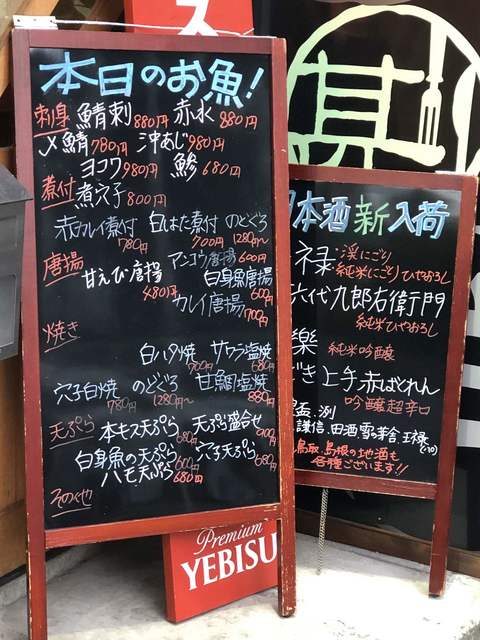 本日のお魚!
刺身 鯖刺 880円 赤水 880円
〆鯖 780円 沖あじ 980円
ヨコワ 980円 鯵 680円
煮付 煮穴子 800円
赤カレイ煮付 780円 白はた煮付 700円 のどぐろ 1280円〜
唐揚 甘えび唐揚 480円 アンコウ唐揚 600円
白身魚唐揚 600円
カレイ唐揚 700円
焼き
白ハタ焼 700円 サワラ塩焼 680円
穴子白焼 780円 のどぐろ 1280円〜 甘鯛塩焼 880円
天ぷら 本キス天ぷら 680円 天ぷら盛合せ 900円
白身魚の天ぷら 600円 穴子天ぷら 680円
ハモ天ぷら 680円
その他
Premium
YEBISU
本酒 新入荷
禄 渓にごり
純米にごり ひやおろし
六代九郎右衛門
純米ひやおろし
樂 純米吟醸
き 上手 赤ばとれん
吟醸超辛口
謙信、田酒、雪の茅舎、王禄
鳥取、島根の地酒も
各種ございます!!